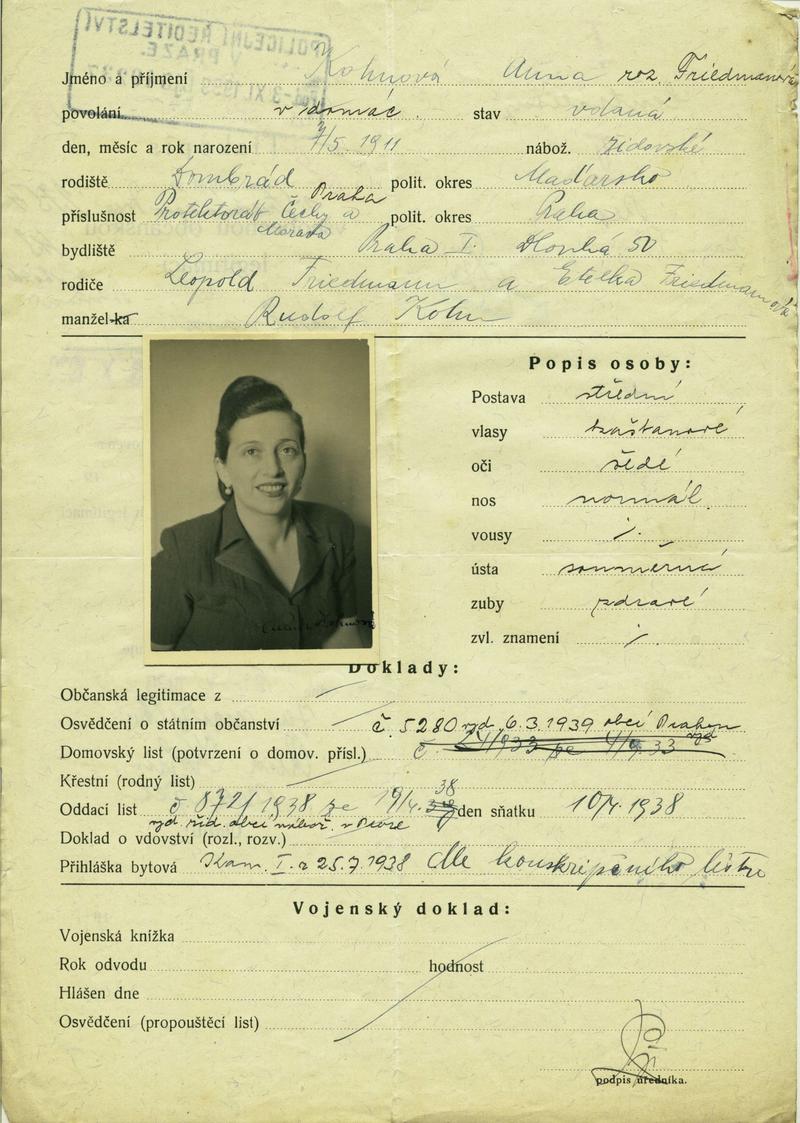 POLICEJNÍ ŘEDITELSTVÍ
V PRAZE.
Jméno a příjmení Kohnová Anna roz. Friedmanová
povolání v domác. stav vdaná
den, měsíc a rok narození 7/5. 1911 nábož. židovské
rodiště Dombrád polit. okres Maďarsko
příslušnost Protektorát Čechy a Morava Praha polit. okres Praha
bydliště Praha I. Dlouhá 50
rodiče Leopold Friedmann a Etelka Friedmanová
manžel-ka Rudolf Kohn
Popis osoby:
Postava střední
vlasy kaštanové
oči šedé
nos normál.
vousy /.
ústa souměrná
zuby zdravé
zvl. znamení /.
Doklady:
Občanská legitimace z
Osvědčení o státním občanství č. 5280 vyd. 6.3.1939 obcí Prahou
Domovský list (potvrzení o domov. přísl.) č
Křestní (rodný list)
Oddací list č 872/1938 ze 19/4. 38 den sňatku 10/4. 1938
vyd. žid. obcí nábož. v
Doklad o vdovství (rozl., rozv.)
Přihláška bytová Kom. I. z 25.7.1938 dle konskripčního listu
Vojenský doklad:
Vojenská knížka
Rok odvodu hodnost
Hlášen dne
Osvědčení (propouštěcí list)
podpis úředníka.